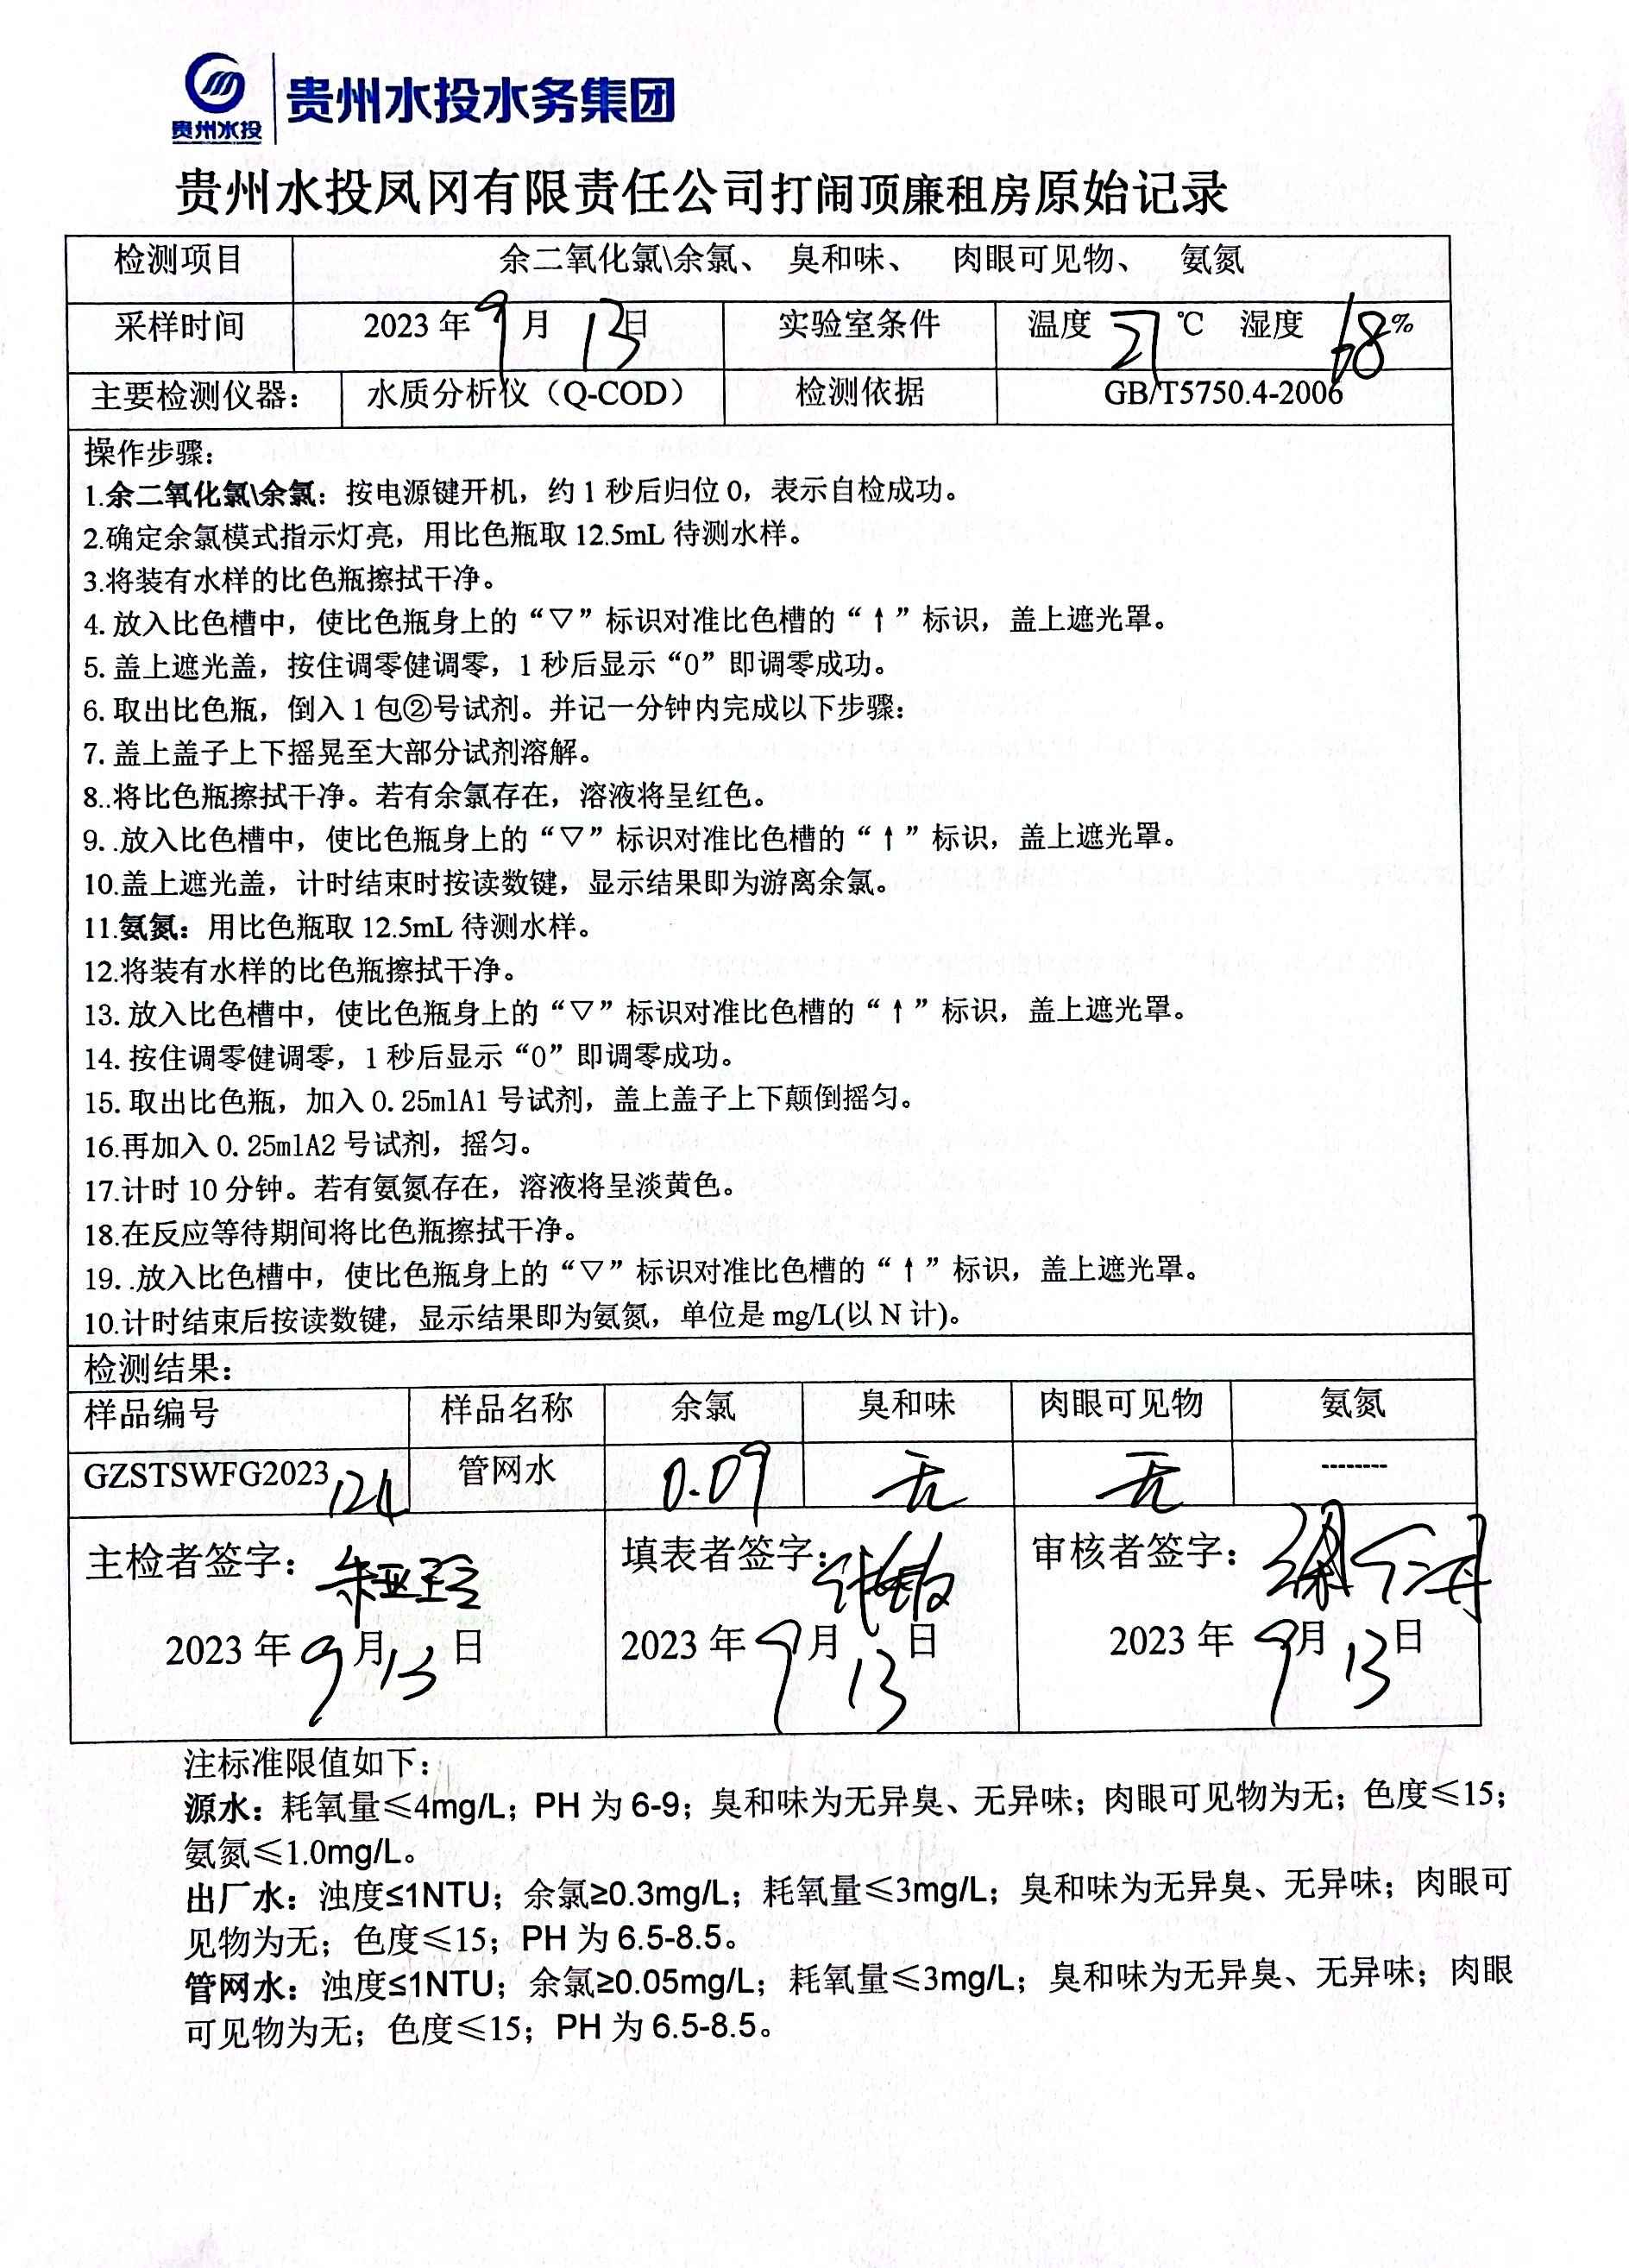 贵州水投
贵州水投水务集团
贵州水投凤冈有限责任公司打闹顶廉租房原始记录
检测项目 余二氧化氯\余氯、 臭和味、 肉眼可见物、 氨氮
采样时间 2023年9月13日 实验室条件 温度21℃ 湿度68%
主要检测仪器： 水质分析仪（Q-COD） 检测依据 GB/T5750.4-2006
操作步骤：
1.余二氧化氯\余氯：按电源键开机，约1秒后归位0，表示自检成功。
2.确定余氯模式指示灯亮，用比色瓶取12.5mL待测水样。
3.将装有水样的比色瓶擦拭干净。
4.放入比色槽中，使比色瓶身上的“▽”标识对准比色槽的“↑”标识，盖上遮光罩。
5.盖上遮光盖，按住调零健调零，1秒后显示“0”即调零成功。
6.取出比色瓶，倒入1包②号试剂。并记一分钟内完成以下步骤：
7.盖上盖子上下摇晃至大部分试剂溶解。
8..将比色瓶擦拭干净。若有余氯存在，溶液将呈红色。
9..放入比色槽中，使比色瓶身上的“▽”标识对准比色槽的“↑”标识，盖上遮光罩。
10.盖上遮光盖，计时结束时按读数键，显示结果即为游离余氯。
11.氨氮：用比色瓶取12.5mL待测水样。
12.将装有水样的比色瓶擦拭干净。
13.放入比色槽中，使比色瓶身上的“▽”标识对准比色槽的“↑”标识，盖上遮光罩。
14.按住调零健调零，1秒后显示“0”即调零成功。
15.取出比色瓶，加入0.25mlA1号试剂，盖上盖子上下颠倒摇匀。
16.再加入0.25mlA2号试剂，摇匀。
17.计时10分钟。若有氨氮存在，溶液将呈淡黄色。
18.在反应等待期间将比色瓶擦拭干净。
19..放入比色槽中，使比色瓶身上的“▽”标识对准比色槽的“↑”标识，盖上遮光罩。
10.计时结束后按读数键，显示结果即为氨氮，单位是mg/L(以N计)。
检测结果：
样品编号 样品名称 余氯 臭和味 肉眼可见物 氨氮
GZSTSWFG2023124 管网水 0.09 无 无 --------
主检者签字： 填表者签字： 审核者签字：
2023年9月13日 2023年9月13日 2023年9月13日
注标准限值如下：
源水：耗氧量≤4mg/L；PH为6-9；臭和味为无异臭、无异味；肉眼可见物为无；色度≤15；
氨氮≤1.0mg/L。
出厂水：浊度≤1NTU；余氯≥0.3mg/L；耗氧量≤3mg/L；臭和味为无异臭、无异味；肉眼可
见物为无；色度≤15；PH为6.5-8.5。
管网水：浊度≤1NTU；余氯≥0.05mg/L；耗氧量≤3mg/L；臭和味为无异臭、无异味；肉眼
可见物为无；色度≤15；PH为6.5-8.5。